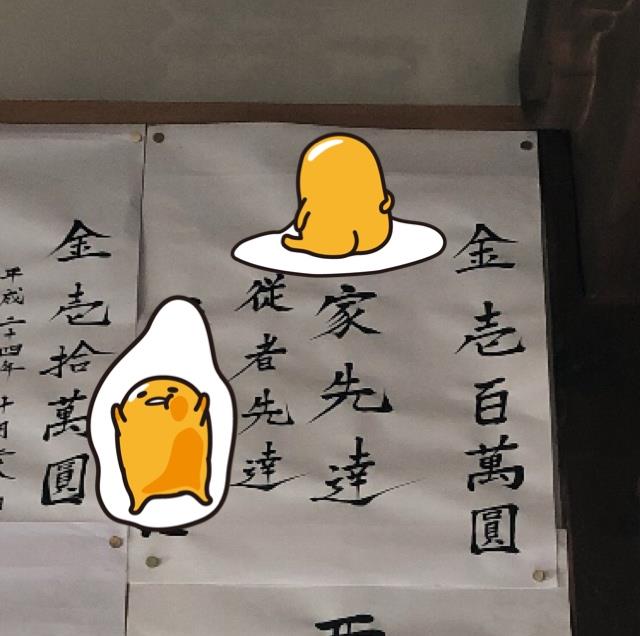 金壱百萬圓
家先達
従者先達
金壱拾萬圓
平成二十四年十月